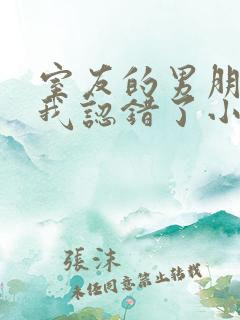 室友的男朋
我認錯了小
張沫
未經同意禁止轉載